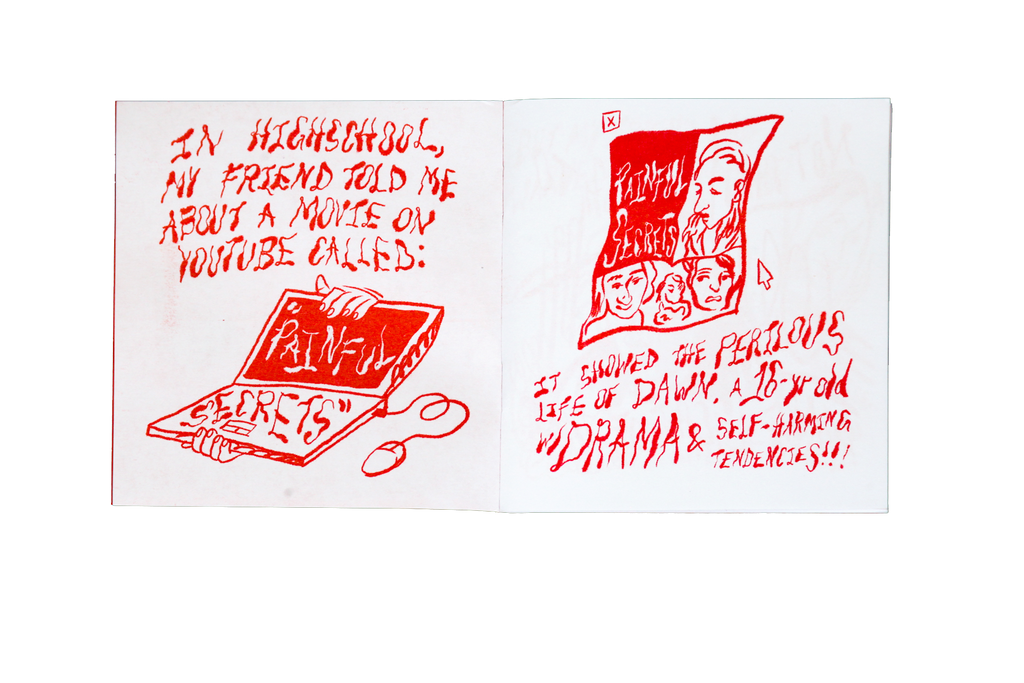 IN HIGHSCHOOL,
MY FRIEND TOLD ME
ABOUT A MOVIE ON
YOUTUBE CALLED:
"PAINFUL
SECRETS"
X
PAINFUL
SECRETS
IT SHOWED THE PERILOUS
LIFE OF DAWN. A 16-yr old
w/ DRAMA & SELF-HARMING
TENDENCIES!!!